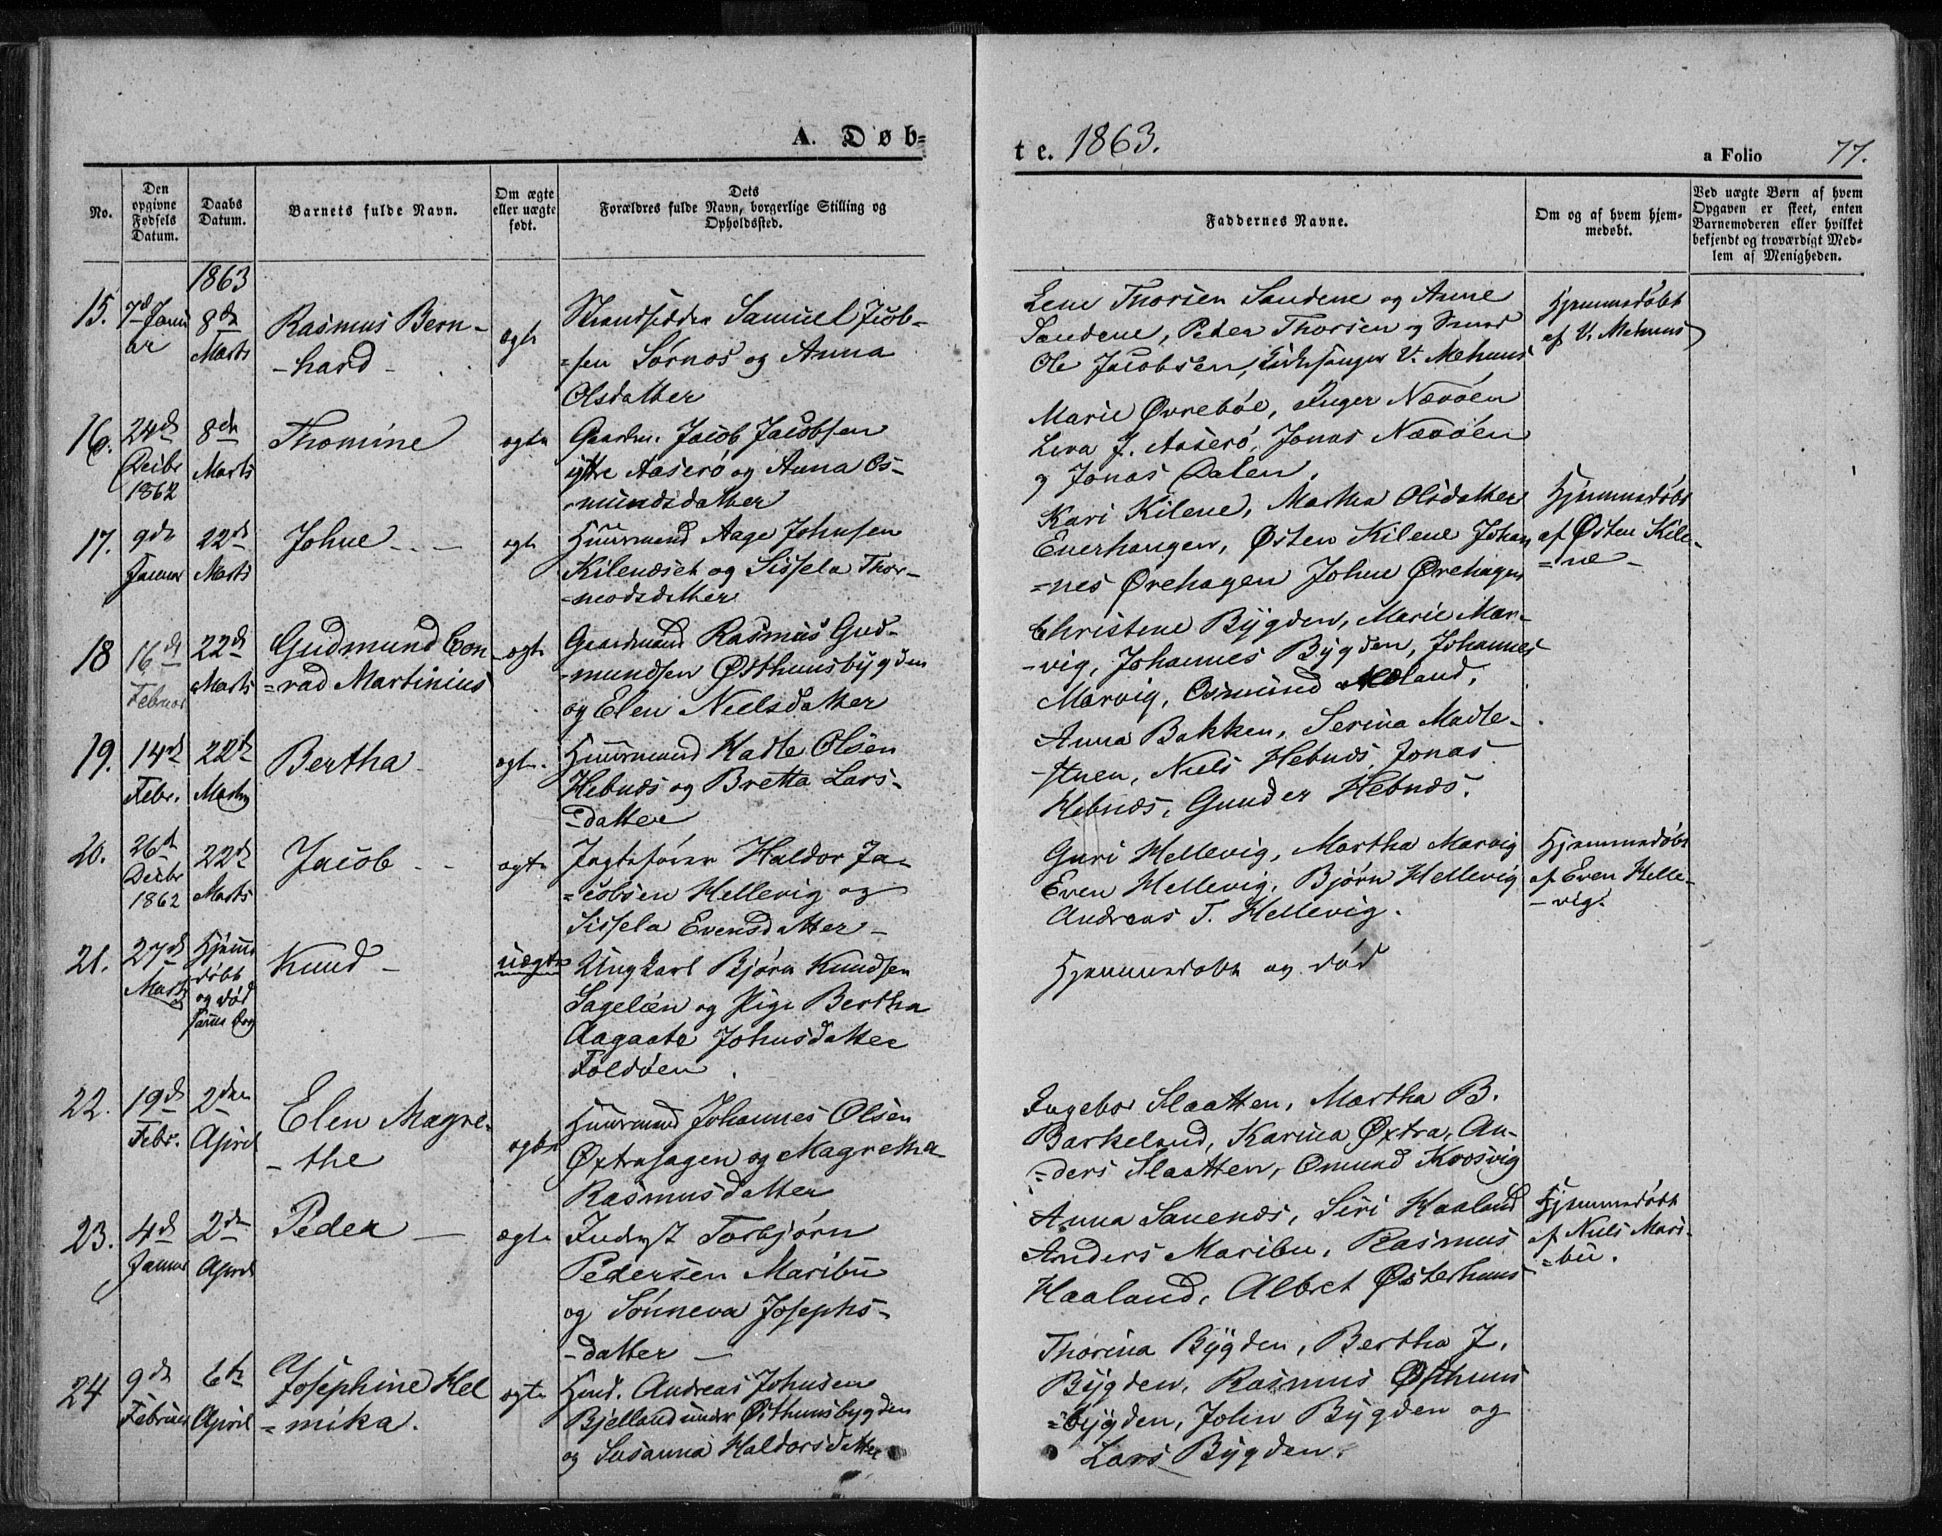 A. Døb=
te. 1863.
a Folio 77.
No.
Den opgivne Fødsels Datum.
Daabs Datum.
Barnets fulde Navn.
Om ægte eller uægte født.
Dets Forældres fulde Navn, borgerlige Stilling og Opholdssted.
Faddernes Navne.
Om og af hvem hjem-medøbt.
Ved uægte Børn af hvem Opgaven er skeet, enten Barnemoderen eller hvilket bekjendt og troværdigt Med-lem af Menigheden.
1863
15. 7d Janu 8de Rasmus Bern- ægte Strandsidder Samuel Jacob-
ar Marts -hard- =sen Sørnes og Anna
Olsdatter
Lene Thorsen Sandene og Anne
Sandene, Peder Thorsen og Smed
Ole Jacobsen, Kirkesanger V. Mehuus
Hjemmedøbt
af V. Mehuus
16. 24de 8de Thomine ægte Gaardm. Jacob Jacobsen
Decbr Marts ytre Aaserø og Anna Os-
1862 -mundsdatter
Marie Øvrebøe, Inger Nævøen
Liva J. Aaserø, Jonas Nævøen
og Jonas Dalen.
17. 9de 22de Johne - - ægte Huusmand Aage Johnsen
Januar Marts Kileneset og Sissela Thor-
-modsdatter
Kari Kilene, Martha Olsdatter
Enerhaugen, Østen Kilene Johan
=nes Ørehagen Johne Ørehagen
Hjemmedøbt
af Østen Kile-
=ne-
18 16de 22de Gudmund Con- ægte Gaardmand Rasmus Gud-
Februar Marts =rad Martinius -mundsen Østhuusbygden
og Elen Nielsdatter
Christene Bygden, Marie Mar-
-vig, Johannes Bygden, Johannes
Marvig, Osmund Meland,
19. 14de 22de Bertha- ægte. Huusmand Hadle Olsen
Febr. Marts Hebnes og Bretta Lars-
=datter
Anna Bakken, Serina Madle-
-stuen, Niels Hebnes, Jonas
Hebnes, Gunder Hebnes.
20. 26de 22de Jacob - - ægte Jagtefører Haldor Ja-
Decbr Marts =cobsen Hellevig og
1862 Sissela Evensdatter-
Guri Hellevig, Martha Marvig
Even Hellevig, Bjørn Hellevig
Andreas T. Hellevig.
Hjemmedøbt
af Even Helle-
-vig.
21. 27de Hjemme Knud- uægte Ungkarl Bjørn Knudsen
Marts døbt Sageløen og Pige Bertha
og død Aagaate Johnsdatter
samme Dag Foldøen.
Hjemmedøbt og død
22. 19de 2den Elen Magre- ægte Huusmand Johannes Olsen
Febr. April -the Øxtrahagen og Magretha
Rasmusdatter
Ingebor Slaatten, Martha B.
Barkeland, Karina Øxtra, An-
=ders Slaatten, Omund Krosvig
23. 4de 2den Peder - ægte Inderst Torbjørn
Januar April Pedersen Maribu
og Sønneva Josephs-
-datter -
Anna Sauenes, Siri Haaland
Anders Maribu, Rasmus
Haaland, Albret Østerhuus
Hjemmedøbt
af Niels Mari-
=bu.
24 9de 6te Josephine Hel ægte Huusd. Andreas Johnsen
Februar April =mika. Bjelland under Østhuusbygden
og Susanna Haldorsdatter
Thorina Bygden, Bertha J.
Bygden, Rasmus Østhuus
=bygden, John Bygden og
Lars Bygden.